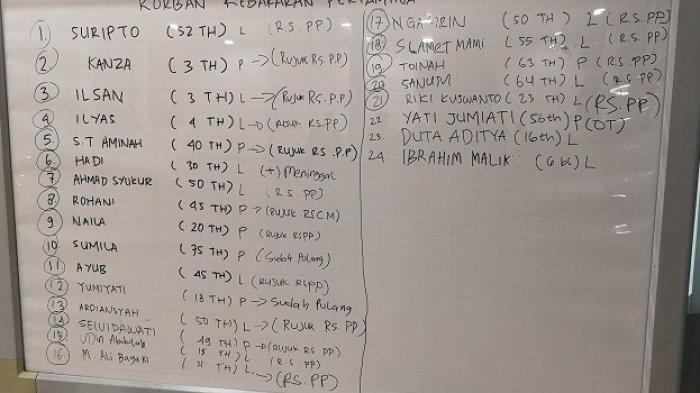 KORBAN KEBAKARAN PERTAMINA
1. SURIPTO (52 TH) L (RS. PP)
2 KANZA (3 TH) P → (RUJUK RS.P.P)
3 ILSAN (3 TH) L → (RUJUK RS.PP)
4 ILYAS (4 TH) L → (RUJUK RS.PP)
5 S.T AMINAH (40 TH) P → (RUJUK RS.P.P)
6. HADI (30 TH) L (+) Meninggal
7 AHMAD SYUKUR (50 TH) L (R.S. PP)
8 ROHANI (45 TH) P → (RUJUK RSCM)
9 NAILA (20 TH) P (RUJUK RSPP)
10. SUMILA (75 TH) P (Sudah Pulang)
11. AYUB (45 TH) L (RUJUK RSPP)
12 YUMIYATI (18 TH) P → Sudah Pulang
13 ARDIANSYAH (50 TH) L → (RUJUK RS. PP)
14 SEWIDAWATI (49 TH) P → (RUJUK RS. PP)
15. Abdulah (15 TH) L (R.S. PP)
16. M. Ali (4 TH) L. → (RS.PP)
17 NGASIRIN (50 TH) L (RS.PP)
18 SLAMET MAMI (55 TH) L (RS.PP)
19 TOINAH (63 TH) P (RS.PP)
20 SANUM (64 TH) L (RS PP)
21 RIKI KUSWANTO (23 TH) L (RS.PP)
22. YATI JUMIATI (56th) P (OT)
23. DUTA ADITYA (16th) L
24. IBRAHIM MALIK (6 bl) L